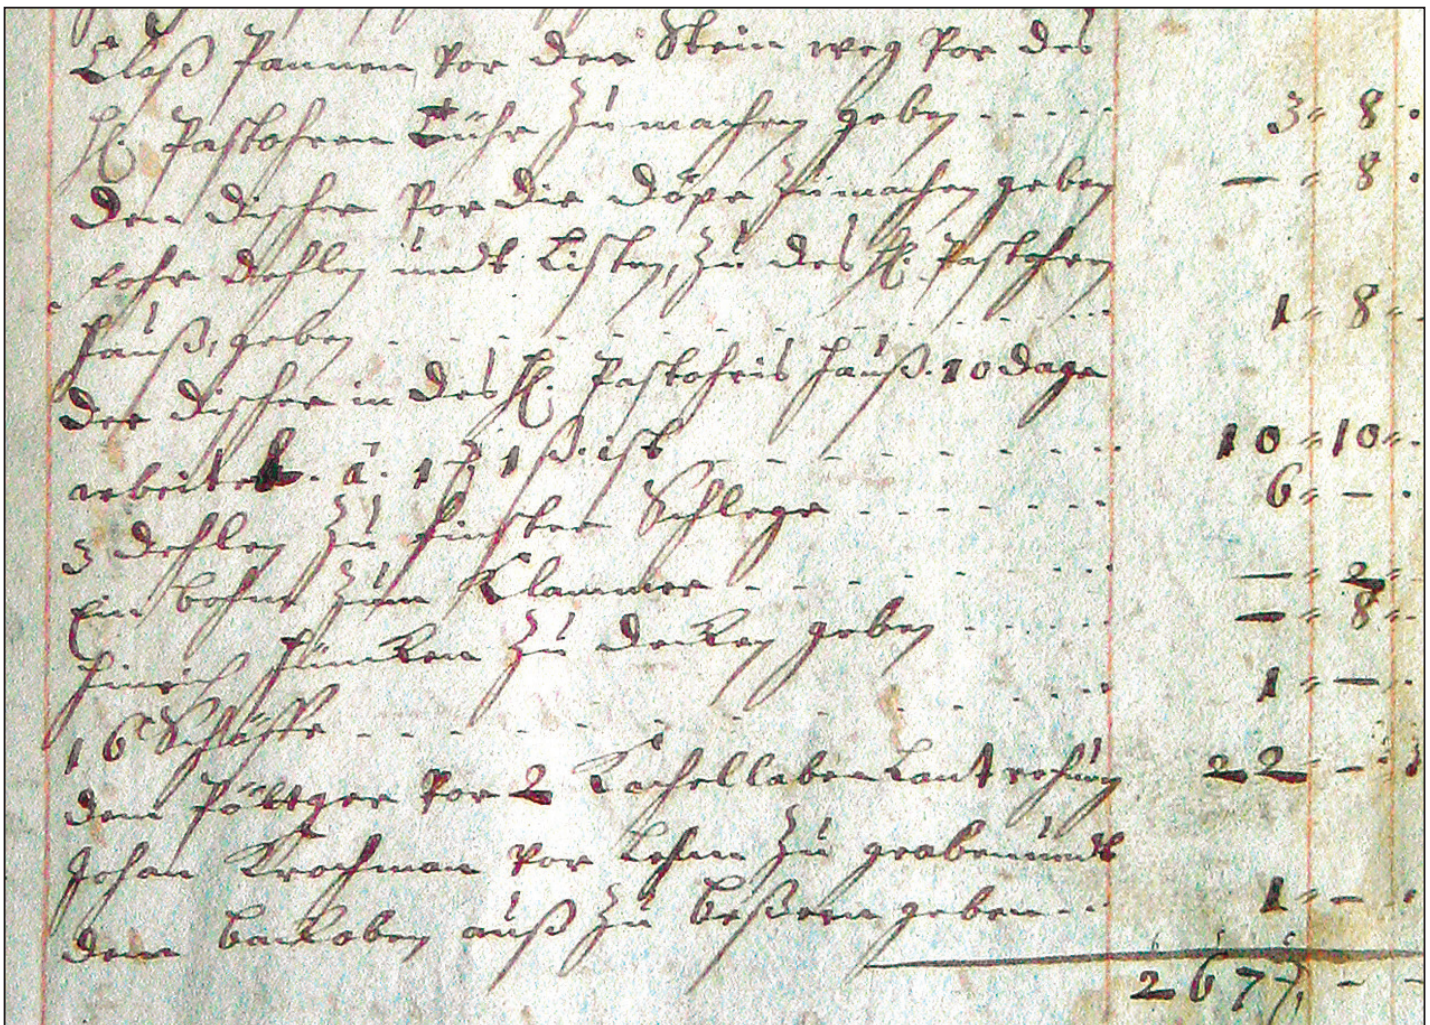 Claß Pannen vor den Stein weg vor des
H. Pastohren Tühr zu machen geben - - - - - 3 " 8 "
den discher vor die döpe zu machen geben — " 8 "
fohr dehlen undt Listen, zu des H. Pastohren
hauß, geben - - - - - 1 " 8 "
der discher in des H. Pastohris hauß. 10 dage
arbeitet. a. 1 1 ß. ist - - - - - 10 " 10 "
3 dehlen zu finster Schlege - - - - - 6 " — "
Ein bohm zum Klammer - - - - - — " 2 "
Hinrich zu decken geben - - - - - — " 8 "
16 - - - - - 1 " — "
dem Pöttger vor 2 Kachellaben 22 " — "
Johan Krochman vor Lehm zu graben undt
dem backoben auß zu beßern geben - - 1 " — "
267 " — "